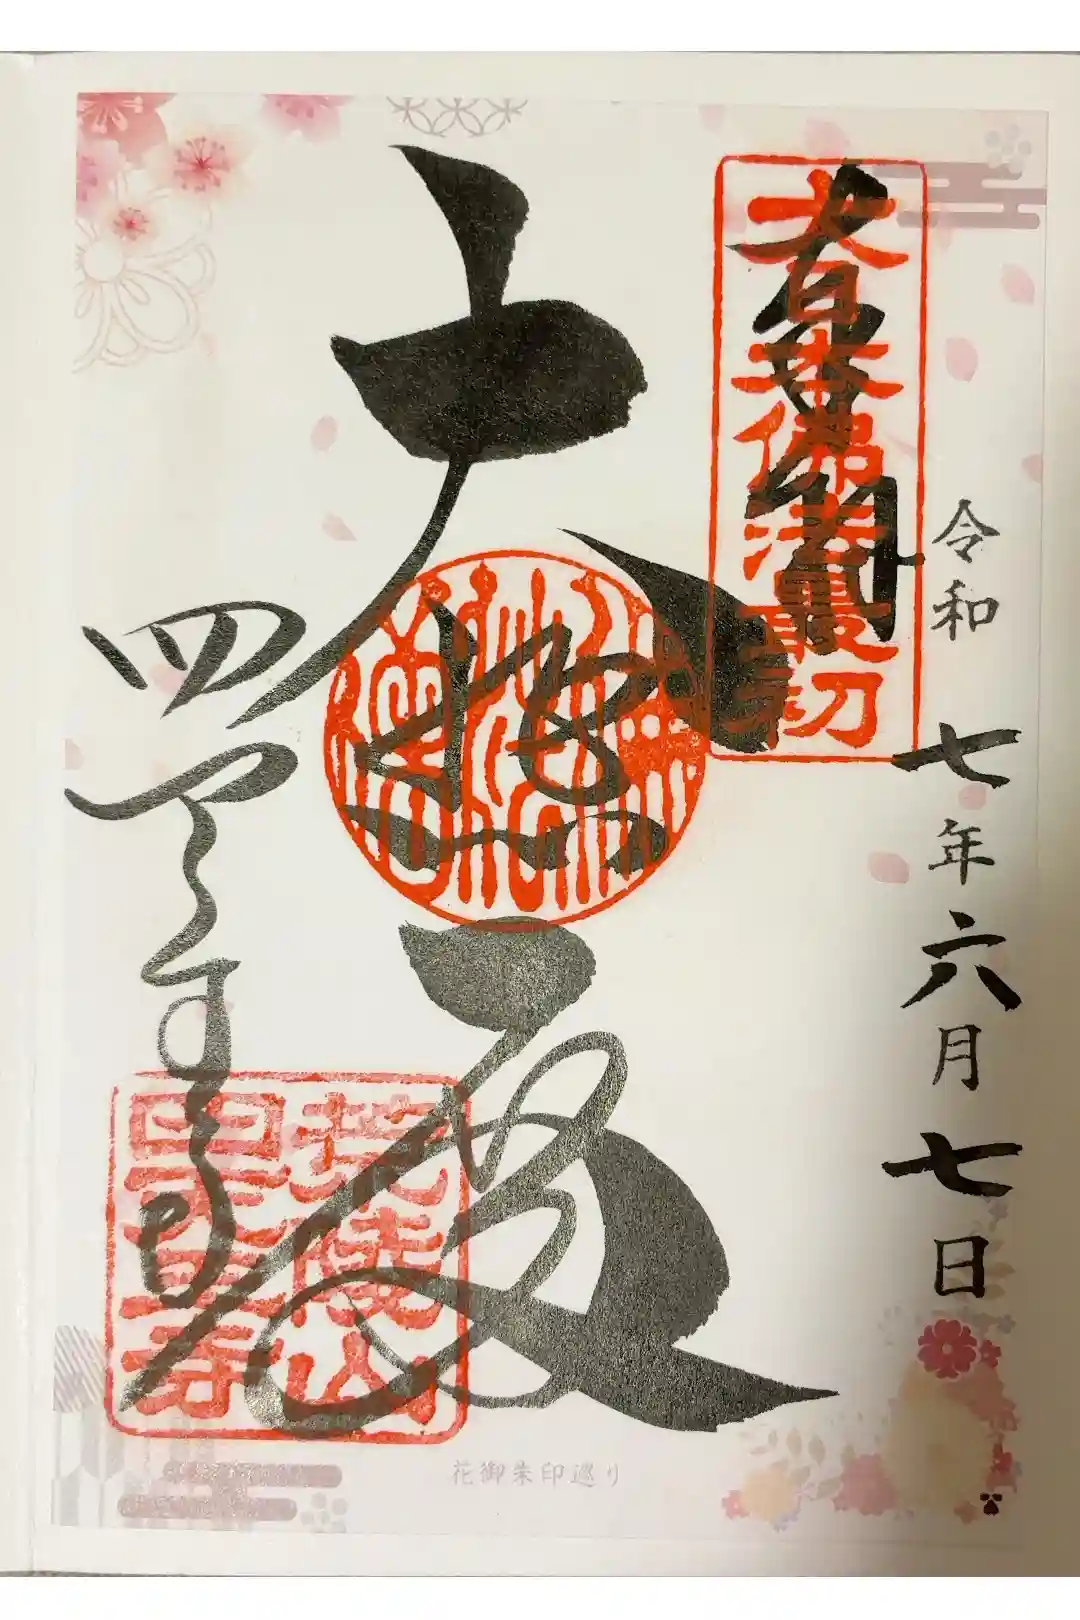 大日本佛法最初
令和七年六月七日
大悲殿
四天王寺
荒陵山
四天王寺
花御朱印巡り